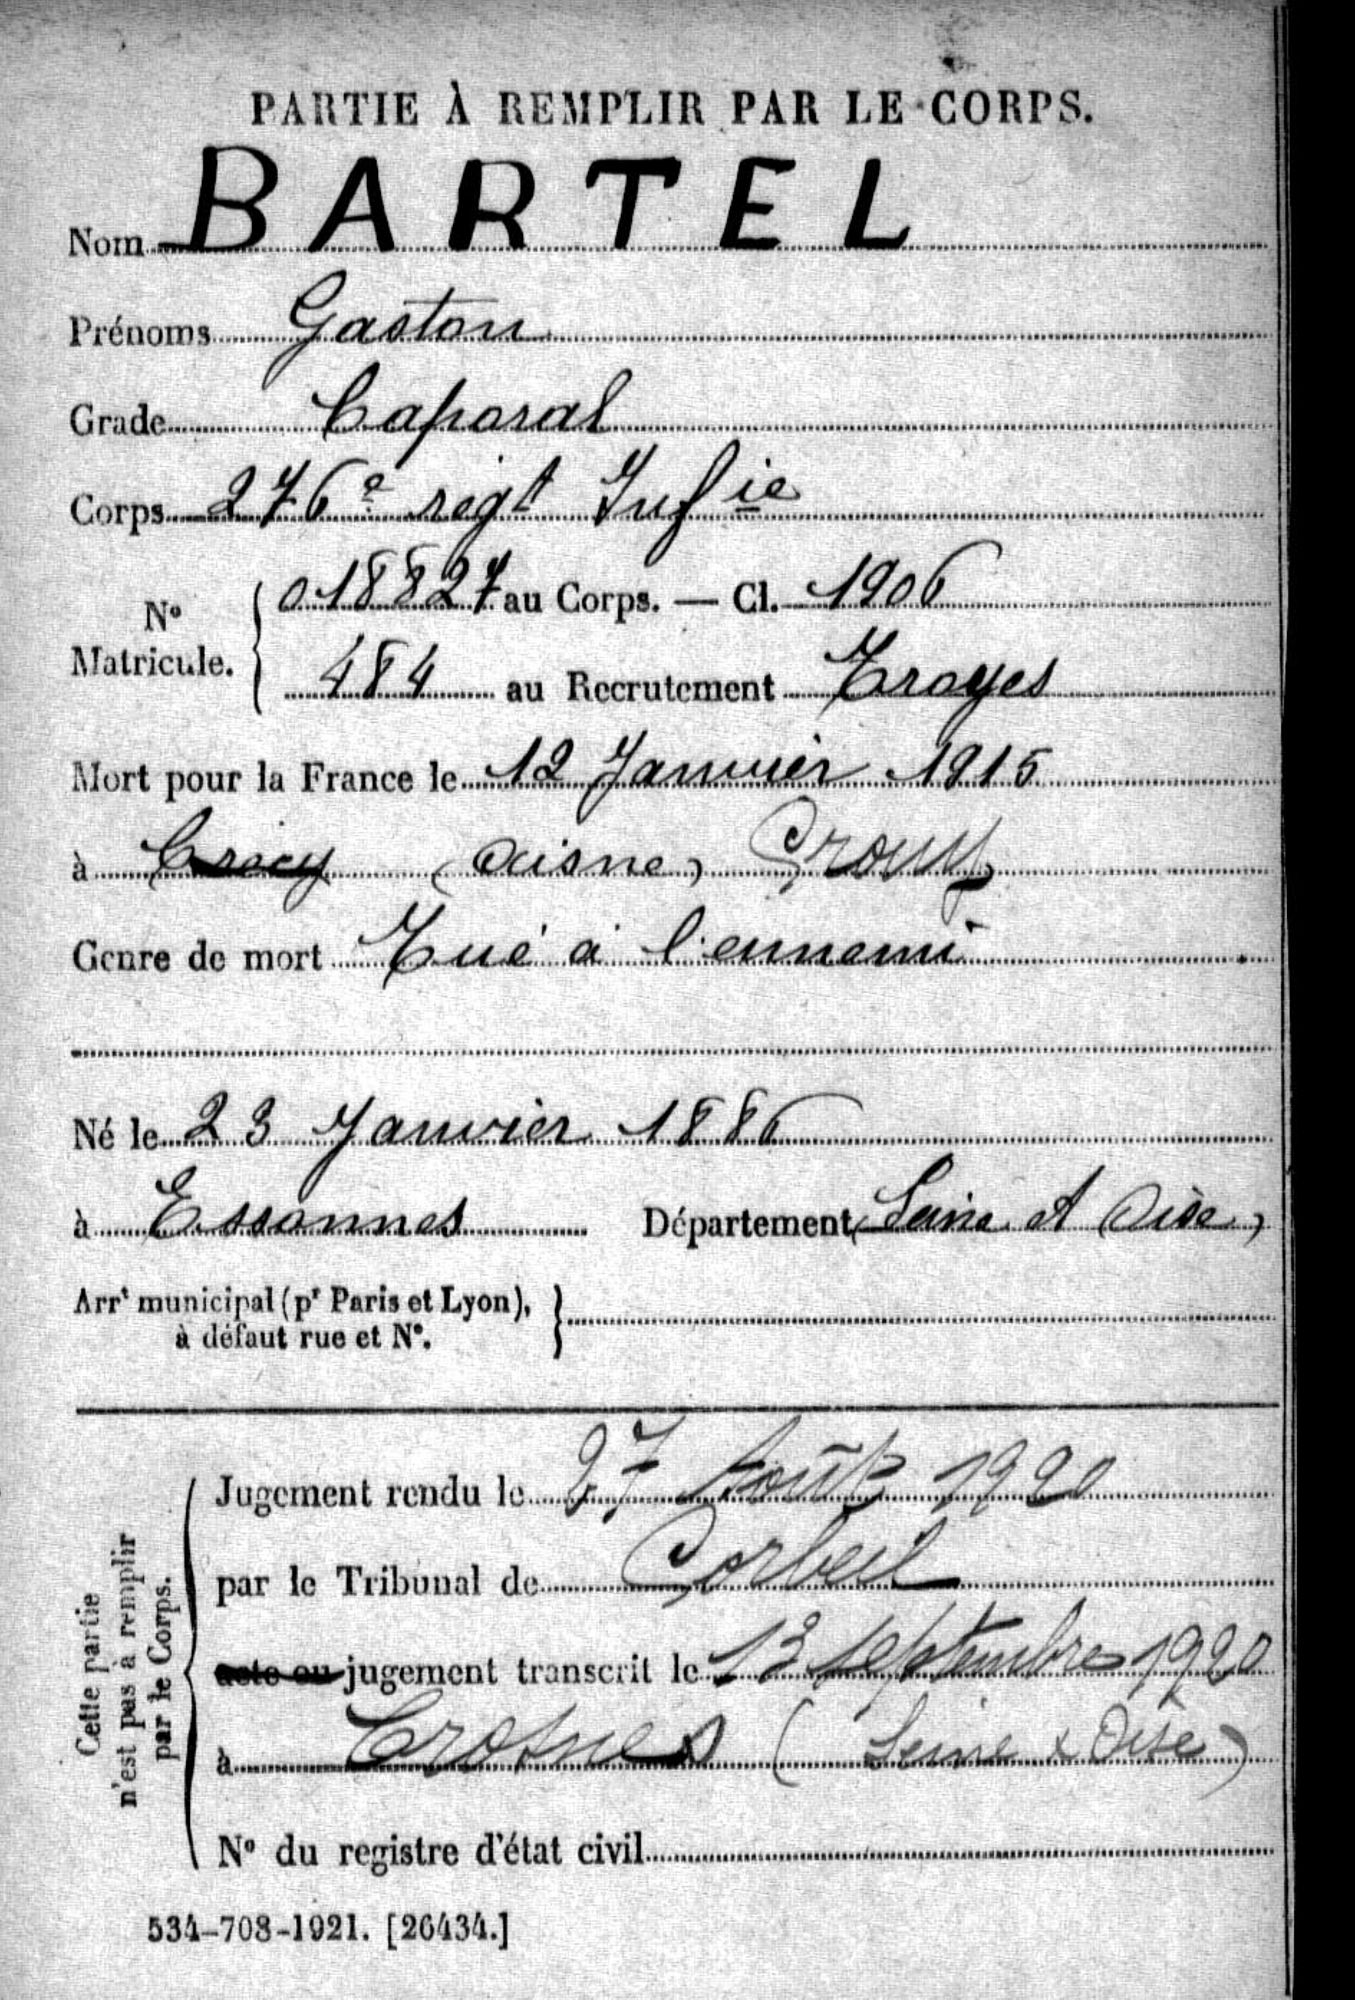 PARTIE À REMPLIR PAR LE CORPS.
Nom BARTEL
Prénoms Gaston
Grade Caporal
Corps 276e regt Infie
No Matricule. 018827 au Corps. — Cl. 1906
484 au Recrutement Troyes
Mort pour la France le 12 Janvier 1915
à Crecy (Aisne) Crouy
Genre de mort Tué à l'ennemi
Né le 23 Janvier 1886
à Essonnes Département (Seine et Oise)
Arrt municipal (pr Paris et Lyon),
à défaut rue et No.
Cette partie
n'est pas à remplir
par le Corps.
Jugement rendu le 27 Août 1920
par le Tribunal de Corbeil
acte ou jugement transcrit le 13 septembre 1920
à Crosnes (Seine & Oise)
No du registre d'état civil
534-708-1921. [26434.]